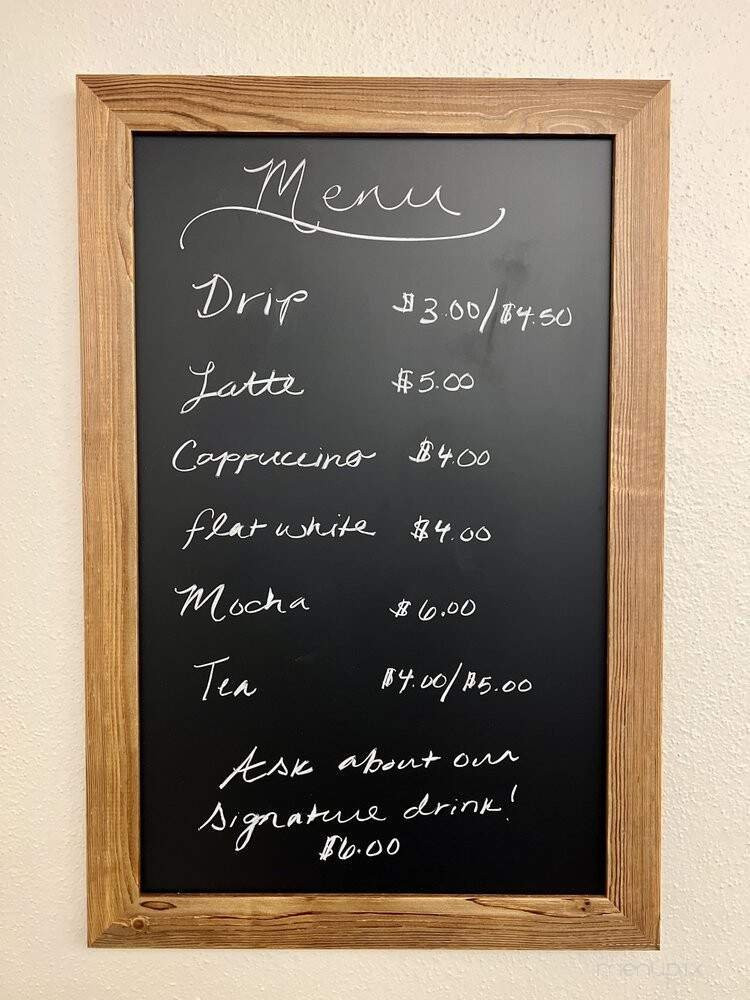 Menu
Drip $3.00/$4.50
Latte $5.00
Cappuccino $4.00
flat white $4.00
Mocha $6.00
Tea $4.00/$5.00
Ask about our
signature drink!
$6.00
menupix